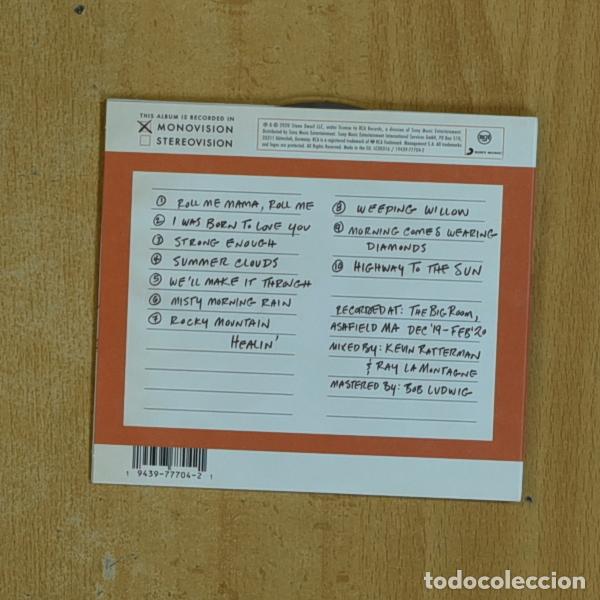 THIS ALBUM IS RECORDED IN
MONOVISION
STEREOVISION
℗ & © 2020 Stone Dwarf LLC, under license to RCA Records, a division of Sony Music Entertainment.
Distributed by Sony Music Entertainment. Sony Music Entertainment International Services GmbH, PO Box 510,
33311 Gütersloh, Germany. RCA is a registered trademark of RCA Trademark Management S.A. All trademarks
and logos are protected. All Rights Reserved. Made in the EU. LC00316 / 19439-77704-2
RCA
SONY MUSIC
1 ROLL ME MAMA, ROLL ME
2 I WAS BORN TO LOVE YOU
3 STRONG ENOUGH
4 SUMMER CLOUDS
5 WE'LL MAKE IT THROUGH
6 MISTY MORNING RAIN
7 ROCKY MOUNTAIN
HEALIN'
8 WEEPING WILLOW
9 MORNING COMES WEARING
DIAMONDS
10 HIGHWAY TO THE SUN
RECORDED AT: THE BIG ROOM,
ASAFIELD MA DEC '19-FEB '20
MIXED BY: KEVIN RATTERMAN
& RAY LAMONTAGNE
MASTERED BY: BOB LUDWIG
1 9439-77704-2 1
todocoleccion